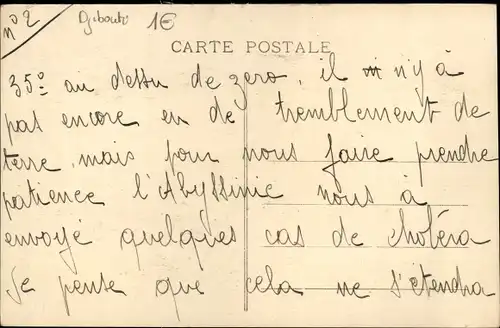 n° 2
Djibouti 1€
CARTE POSTALE
35° au dessu de zero, il n'y à
pas encore eu de tremblement de
terre, mais pour nous faire prendre
patience l'Abyssinie nous à
envoyé quelques cas de choléra
Je pense que cela ne s'étendra